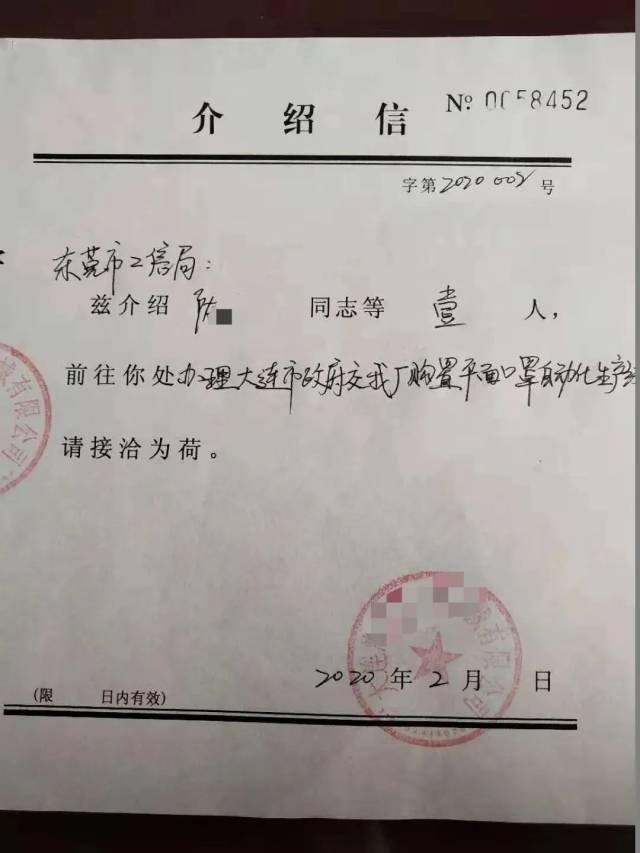 介绍信
№ 0058452
字第2020 002号
东莞市工信局：
兹介绍 陈 同志等 壹 人，
前往你处办理大连市政府交我厂购置平面口罩自动化生产
请接洽为荷。
械有限公司
大连 有限公司
2020年2月 日
(限 日内有效)